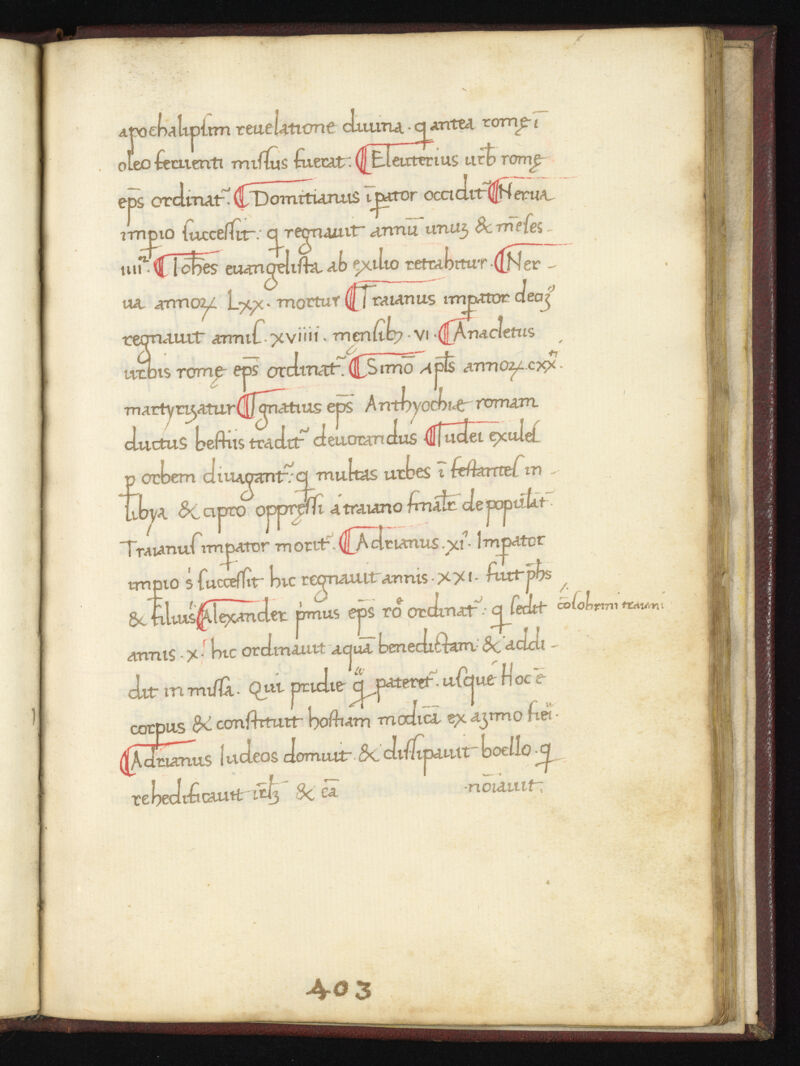 apochalipsim reuelatione diuina · q̄ antea romę ī
oleo feruenti missus fuerat : ¶ Eleuterius urƀ romę
ep̄s ordinat᷑ . ¶ Domitianus īp̄ator occidit᷑ ¶ Nerua
imp̄io successit : q̄ regnauit annū unuꝫ & mēses -
iiii᷑ . ¶ Ioħes euangelista ab exilio retrahitur . ¶ Ner -
ua annoꝝ Lxx · mortur ¶ Traianus imp̄ator deciꝫ᷑
regnauit annis . xviiii . męnsibꝫ · vi · ¶ Anacletus
urbis romę ep̄s ordinat᷑ . ¶ Simō Apƚs annoꝝ . cxx .
martyrizatur ¶ Ignatius ep̄s Anthyochiæ romam
ductus bestiis tradit᷑ deuorandus ¶ Iudei exules
ꝑ orbem diuagant᷑ : q̄ multas urbes ī festantes in -
libya & cipro oppręssi á traiano depopulat᷑
Traianus imp̄ator morit᷑ . ¶ Adrianus . xi᷑ . Imp̄ator
imp̄io s᷑ successit hic regnauit annis · xxi · fuit pħs
& filius ¶ Alexander p᷑mus ep̄s ro᷑ ordinat᷑ : q̄ sedit
cōsobrini traiani
annis . x . hic ordinauit aquā benedictam : & addi -
dit in missa . Qui pridie q̄ pateret᷑ . usque Hoc ē
corpus & constituit hostiam modicā ex azimo fie᷑i .
¶ Adrianus Iudeos domuit & dissipauit boello . q̄
rehedificauit ir̄ƚꝫ & eā · nōiauit :
403